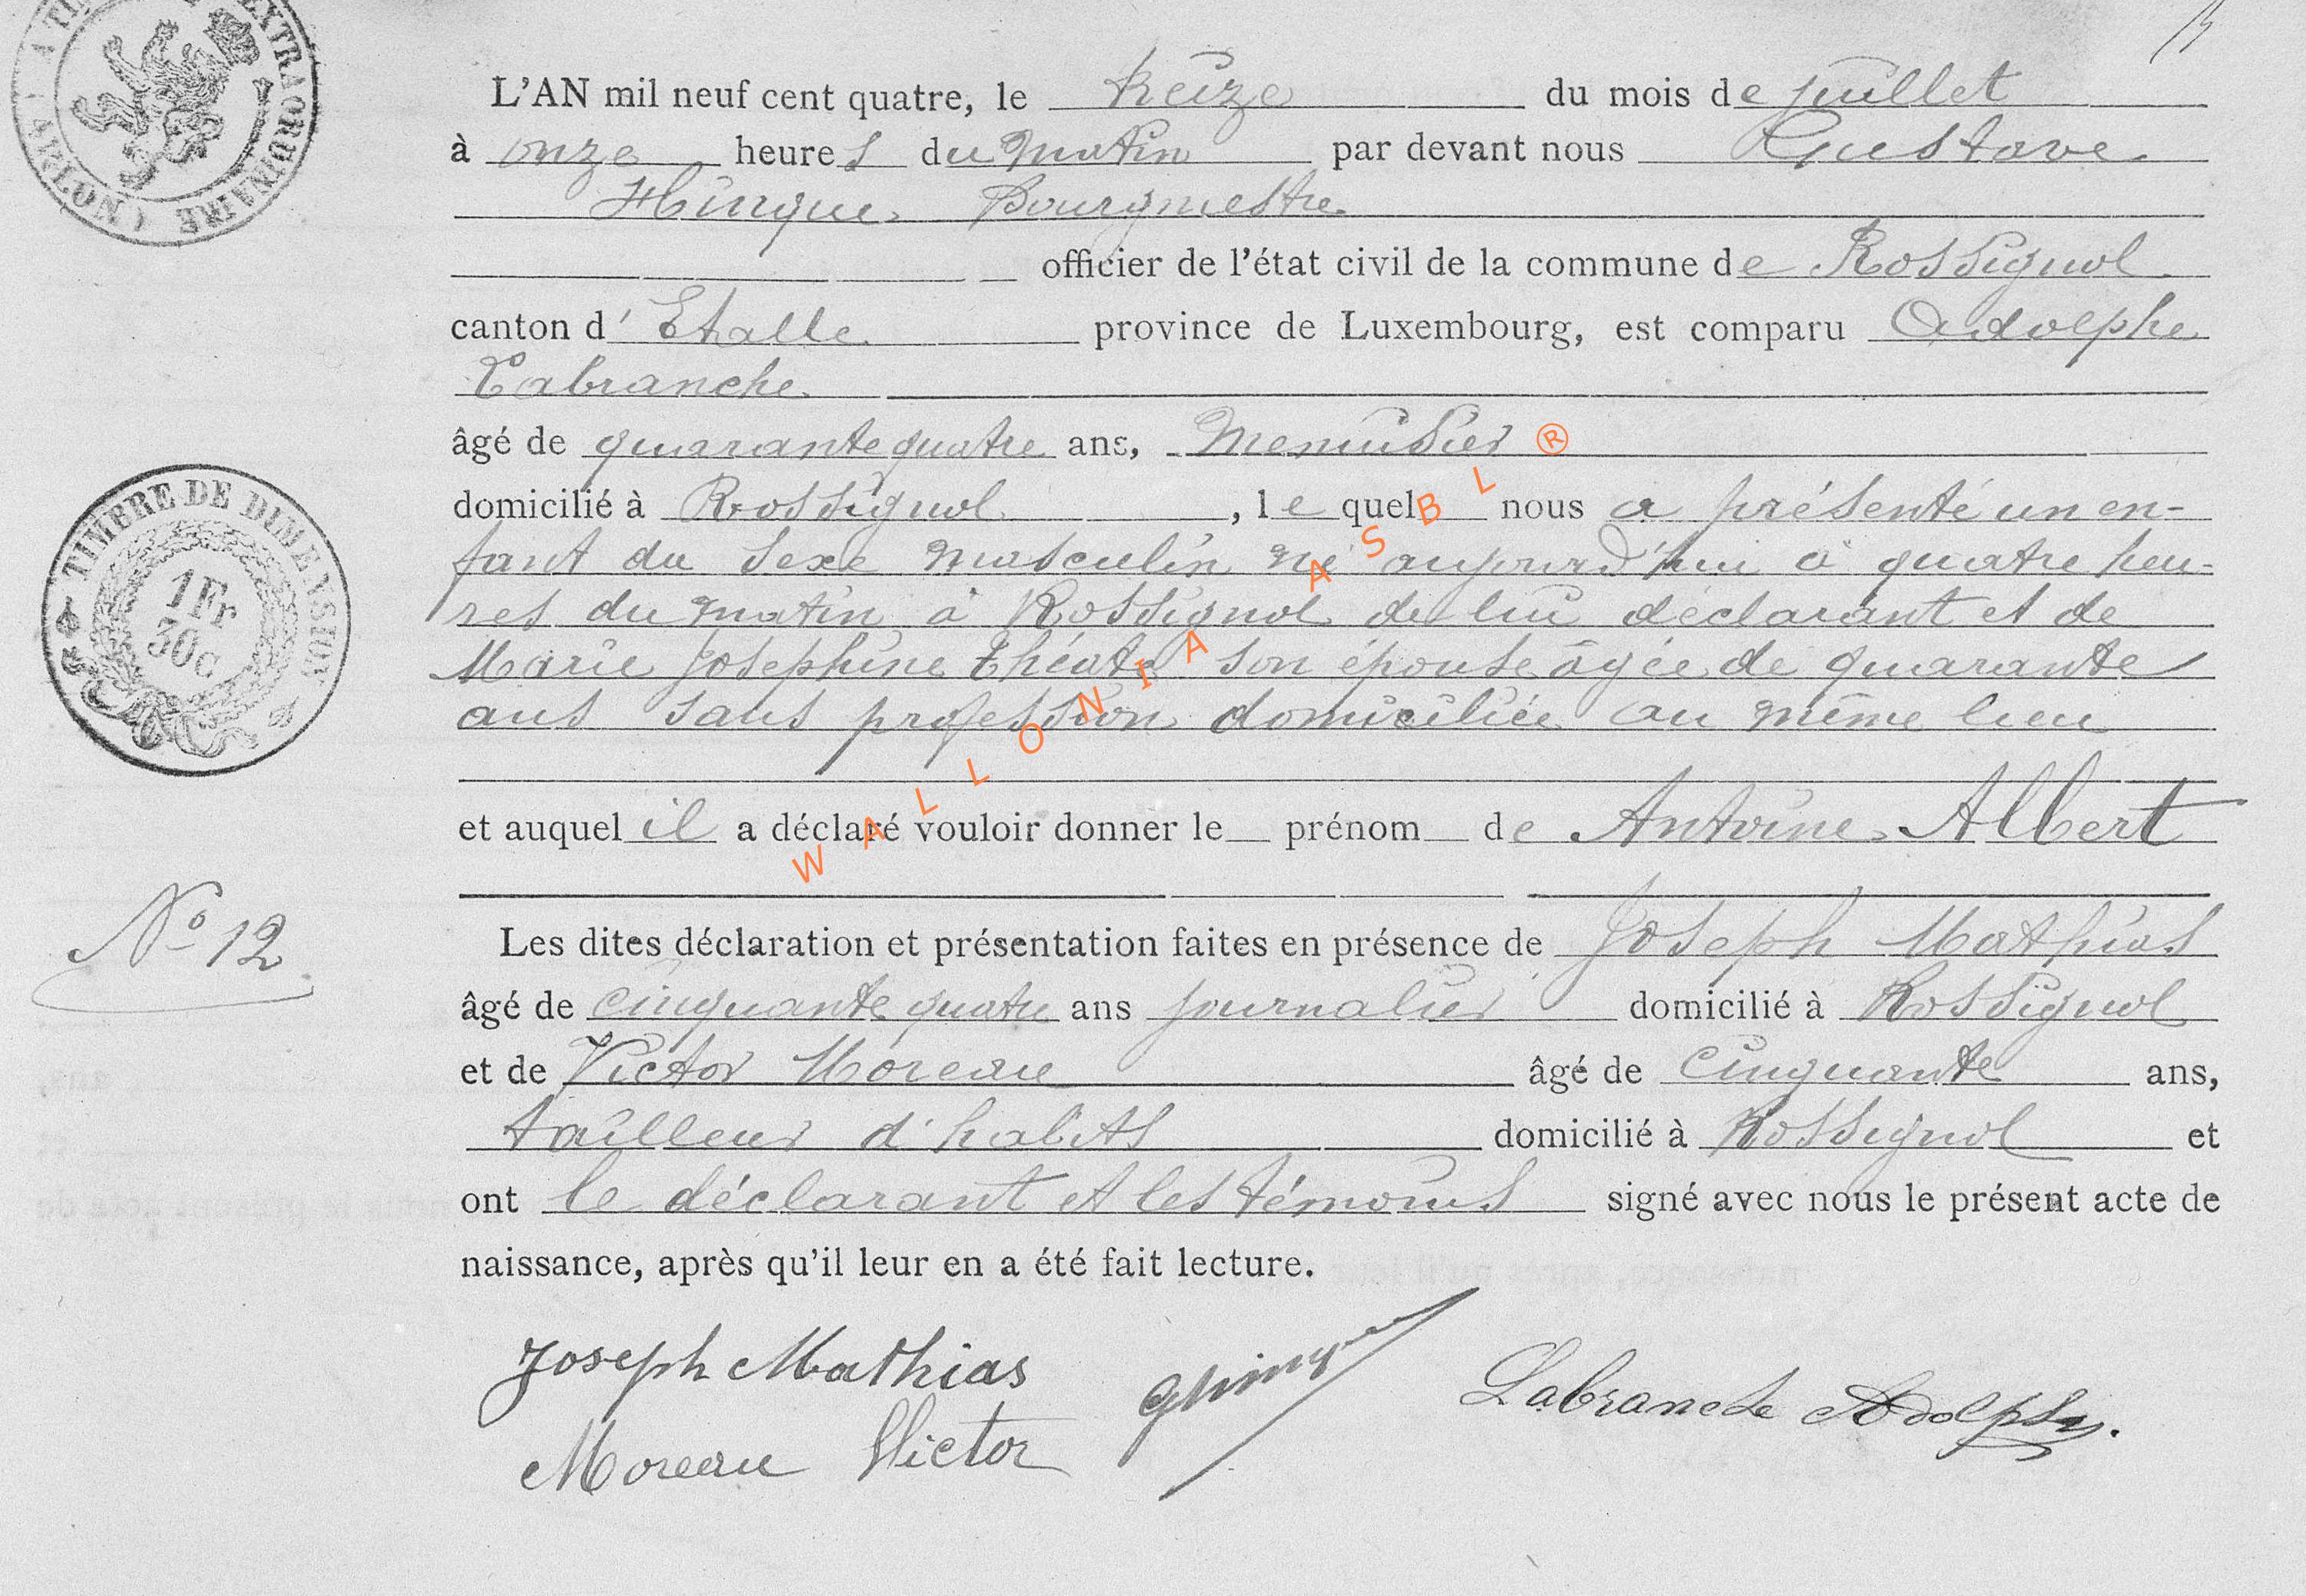 L'AN mil neuf cent quatre, le treize du mois de juillet
à onze heures du matin par devant nous Gustave
Hinque Bourgmestre
officier de l'état civil de la commune de Rossignol
canton d' Etalle province de Luxembourg, est comparu Adolphe
Labranche
âgé de quarante quatre ans, menuisier
domicilié à Rossignol, lequel nous a présenté un en-
fant du sexe masculin né aujourd'hui à quatre heu-
res du matin à Rossignol de lui déclarant et de
Marie Josephine son épouse âgée de quarante
ans sans profession domiciliée au même lieu
et auquel il a déclaré vouloir donner le prénom de Antoine Albert
Les dites déclaration et présentation faites en présence de Joseph Mathias
âgé de cinquante quatre ans journalier domicilié à Rossignol
et de Victor Moreau âgé de cinquante ans,
tailleur d'habits domicilié à Rossignol et
ont le déclarant et les témoins signé avec nous le présent acte de
naissance, après qu'il leur en a été fait lecture.
Joseph Mathias
Labranche Adolphe.
Moreau Victor
No 12
TIMBRE DE DIMENSION
1 Fr
30 c
EXTRAORDINAIRE (ARLON)
WALLONIA ASBL ®